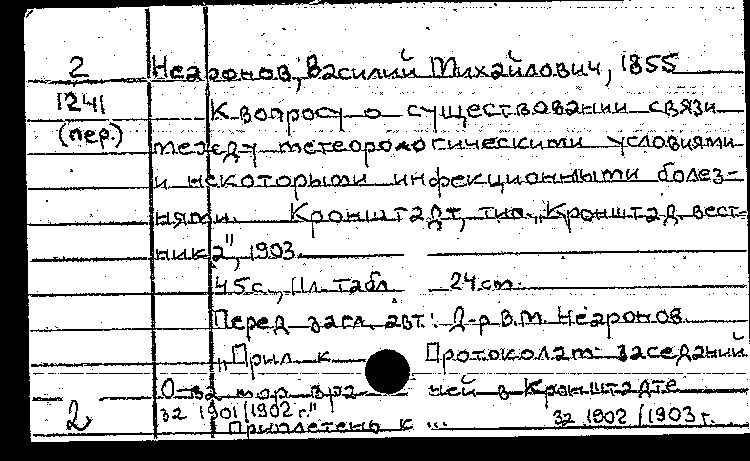 2 Негронов, Василий Михайлович, 1855
1241 К вопросу о существовании связи
(пер.) между метеорологическими условиями
и некоторыми инфекционными болез-
нями. Кронштадт, тип. „Кронштад. вест-
ника", 1903.
45 с., 11 л. табл. 24 см.
Перед загл. авт.: Д-р В.М. Негронов.
„Прил. к Протоколам: заседаний
О-ва мор. вра чей в Кронштадте
2 за 1901/1902 г."
Приплетень к ... за 1902/1903 г.